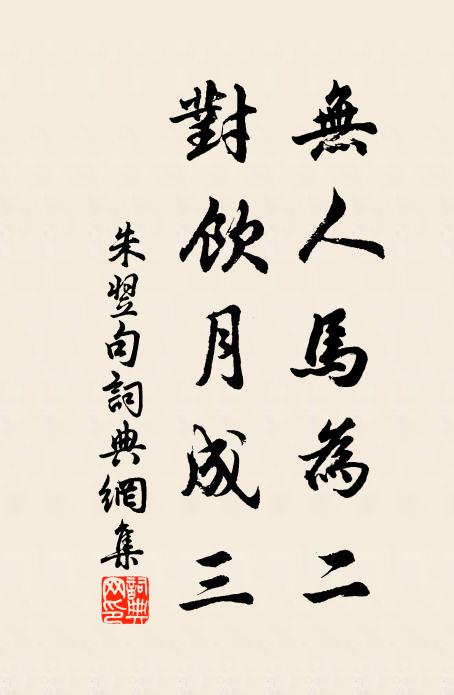 無人馬為二
對飲月成三
朱翌句詞典網集
詞典网印